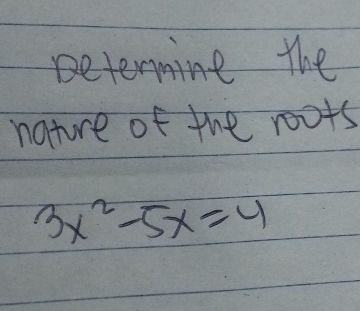 Determine the
nature of the roots
3x²-5x=4